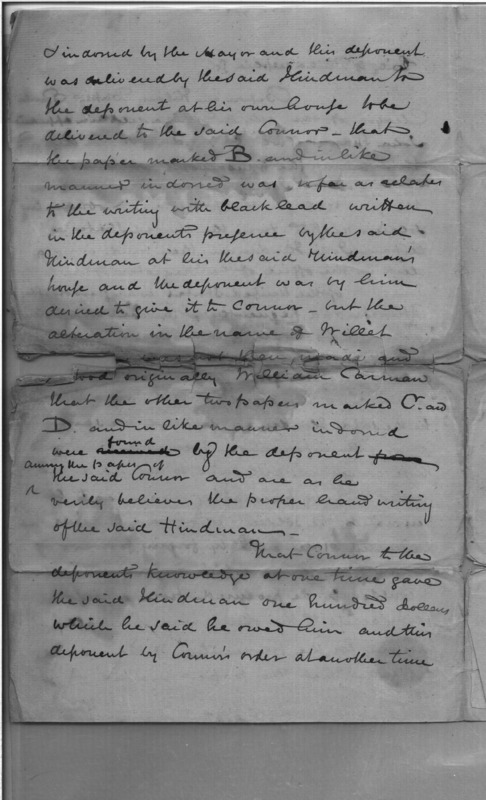 & indorsed by the Mayor and this deponent
was delivered by the said Hindman to
the deponent at his own house to be
delivered to the said Connor - that
the paper marked B. and in like
manner indorsed was so far as relates
to the writing with black lead written
in the deponents presence by the said
Hindman at his the said Hindman's
house and the deponent was by him
desired to give it to Connor - but the
alteration in the name of Willet
was not then made and
stood originally William Carman
that the other two papers marked C. and
D. and in like manner indorsed
were found by the deponent
among the papers of
the said Connor and are as he
verily believes the proper hand writing
of the said Hindman -
That Connor to the
deponents knowledge at one time gave
the said Hindman one hundred dollars
which he said he owed him and this
deponent by Connor's order at another time